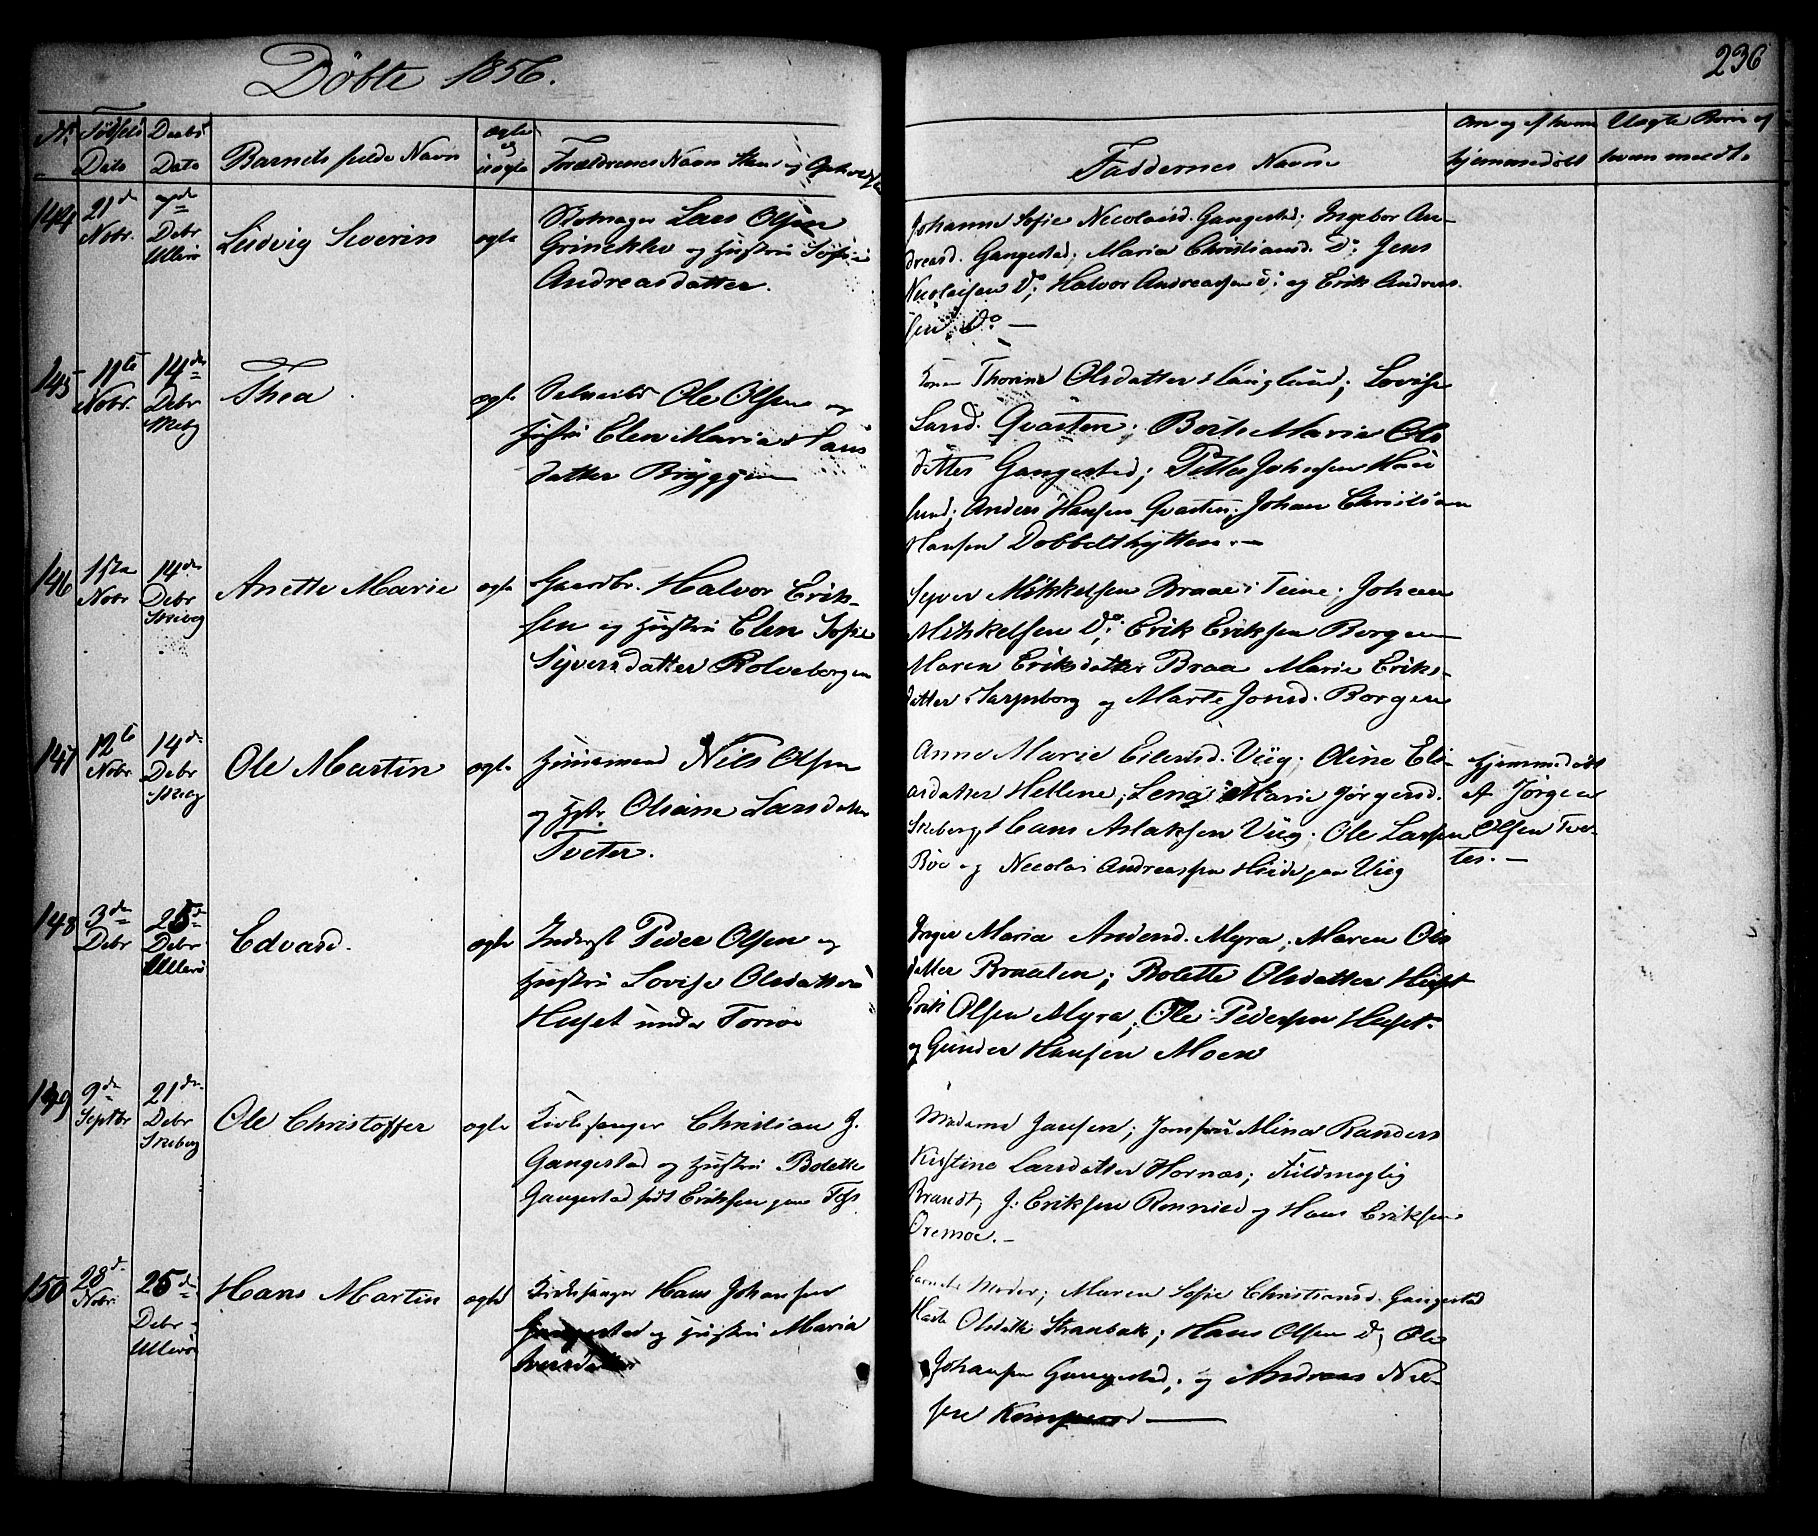 Döbte 1856.
236
No Fødsels Dato
Daabs Dato
Barnets fulde Navn
ægte og uægte
Forældrenes Navn Stand og Opholdssted
Faddernes Navne
Om og af hvem hjemmedøbt
Uægte Barn af hvem meldt.
144
21de Nobr.
7de Debr Ullerö
Ludvig Severin
ægte
Lars Olsen
Grinekke og Hustru Sofie
Andreasdatter.
Johanne Sofie Necolaisd. Gangestad; Ingebor An-
dreasd. Gangestad; Maria Christiansd. Do; Jens
Nicolaisen Do; Halvor Andreassen Do; og Erik Andreas
sen Do —
145
11te Nobr.
14de Debr Skebg
Thea
ægte
Selveier Ole Olsen og
Hustru Elen Maria Lars
datter Bryggen
Kone Thorine Olsdatter Lovise
Larsd. Qvasten; Berte Maria Ols
datter Gangestad; Petter Johnsen Hau
lund; Anders Hansen Qvasten; Johan Christian
Hansen Dobbelthytten. —
146
15de Nobr
14de Debr Skeberg
Anette Marie
ægte
Gaardbr. Halvor Erik-
sen og Hustru Elen Sofie
Syversdatter Rolveborgen
Syver Mikkelsen Braae i Teine; Johan
Mikkelsen Do; Erik Eriksen Borgen
Maren Eriksdatter Braa Marie Eriks-
datter Sarpsborg og Marte Jonsd. Borgen
147
12te Nobr
14de Debr Skebg
Ole Martin
ægte
Huusmand Nils Olsen
og Hstr. Olianne Larsdatter
Tveter.
Anne Marie Eilertsd. Viig; Oline Eli-
asdatter Hellene; Lena Marie Jørgensd.
Skeberg; Hans Aslaksen Viig; Ole Larsen
Böe og Necolai Andreassen Hiide paa Viig
Hjemmedöbt
af Jörgen
Olsen Tve-
ter. —
148
3de Debr
25de Debr Ullerö
Edvard.
ægte
Inderst Peder Olsen og
Hustru Lovise Olsdatter
Huset under Torsö
Inger Maria Andersd. Myra; Maren Ols
datter Braaten; Bolette Olsdatter Huset
Erik Olsen Myra; Ole Pedersen Huset.
og Gunder Hansen Moen
149
9de Septbr
21de Debr Skeberg
Ole Christoffer
ægte
Kirkesanger Christian J.
Gangestad og Hustru Bolette
Gangestad født Eriksen
Madame Jansen; Jomfru Mina Randers
Kirstine Larsdatter Hornæs; Fuldmægtig
Brandt, J: Eriksen Rönnild og Hans Eriksen
Oremoe. —
150
28de Nobr.
25de Debr. Ullerö
Hans Martin
ægte
Kirkesanger Hans Johansen
Gangestad og Hustru Maria
Iversdatter
Barnets Moder; Maren Sofie Christiansd. Gangestad
Marte Olsdatt Straabak; Hans Olsen Do; Ole
Johansen Gangestad; og Andreas Nil-
sen —